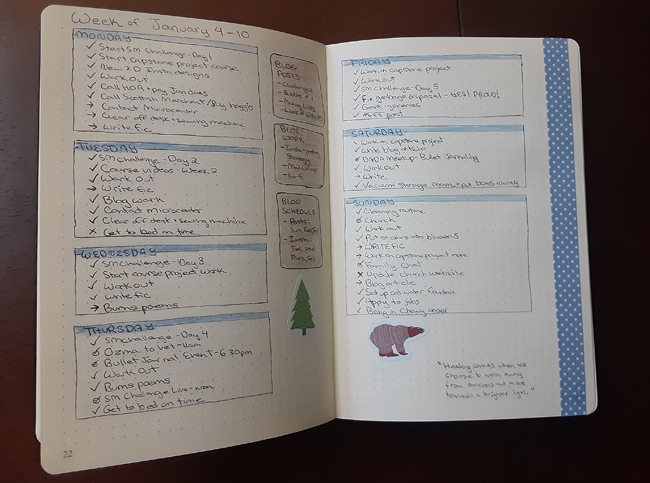 Week of January 4-10
MONDAY
✓ Start SM Challenge - Day 1
✓ Start capstone project course
✓ New XO Insta designs
✓ Work out
✓ Call HOA + pay Jan dues
✓ Call Scottish Merchant/Buy haggis
> Contact Microcenter
> Clear off desk + sewing machine
> Write fic
TUESDAY
✓ SM Challenge - Day 2
✓ Course videos - Week 2
✓ Work Out
> Write fic
✓ Blog work
✓ Contact microcenter
✓ Clear off desk + sewing machine
x Get to bed on time
WEDNESDAY
✓ SM Challenge - Day 3
✓ Start course project work
✓ Work out
✓ Write fic
> Burns poems
THURSDAY
✓ SM Challenge - Day 4
Ozma to vet - 11am
Bullet Journal Event - 6:30pm
✓ Work Out
✓ Burns poems
SM Challenge Live - noon
✓ Get to bed on time
22
BLOG
POSTS
BLOG
WORK
BLOG
SCHEDULE
FRIDAY
✓ Work on capstone project
✓ Work out
✓ SM Challenge - Day 5
✓ Fix garbage disposal - YES! PROUD!
✓ groceries
✓ post
SATURDAY
Work on capstone project
✓ Write blog article
DADA Meetup - Bullet Journaling
✓ Work out
> Write
✓ Vacuum storage room + put boxes away
SUNDAY
✓ Cleaning routine
Church
✓ Work out
✓ Put stickers into binders
> WRITE FIC
> Work on capstone project more
Family Chat
x Update church website
> Blog article
✓ Set up cat water fountain
✓ Apply to jobs
✓ Bring in Chewy order
"Healing comes when we
choose to walk away
from darkness and move
towards a brighter light."